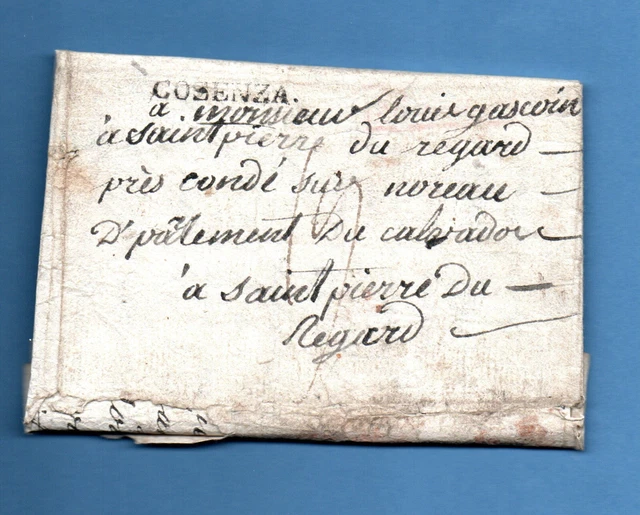 COSENZA.
a monsieur louis gascoin
à saint pierre du regard
près condé sur noreau
D'pâtement Du calvados
à saint pierre Du
Regard